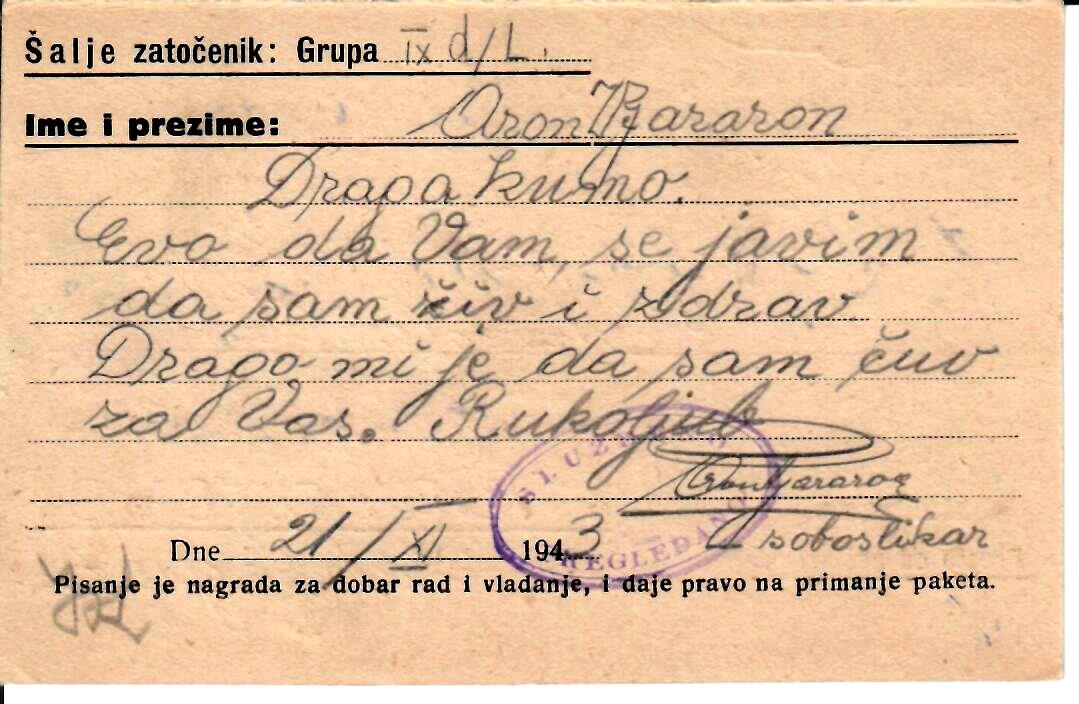 Šalje zatočenik: Grupa IX d/L.
Ime i prezime: Aron Bararon
Draga kumo.
Evo da Vam, se javim
da sam živ i zdrav
Drago mi je da sam čuv
za Vas. Rukoljub
SLUŽBENO
Aron Bararon
Dne 21/XI 1943
PREGLEDANO
soboslikar
Pisanje je nagrada za dobar rad i vladanje, i daje pravo na primanje paketa.